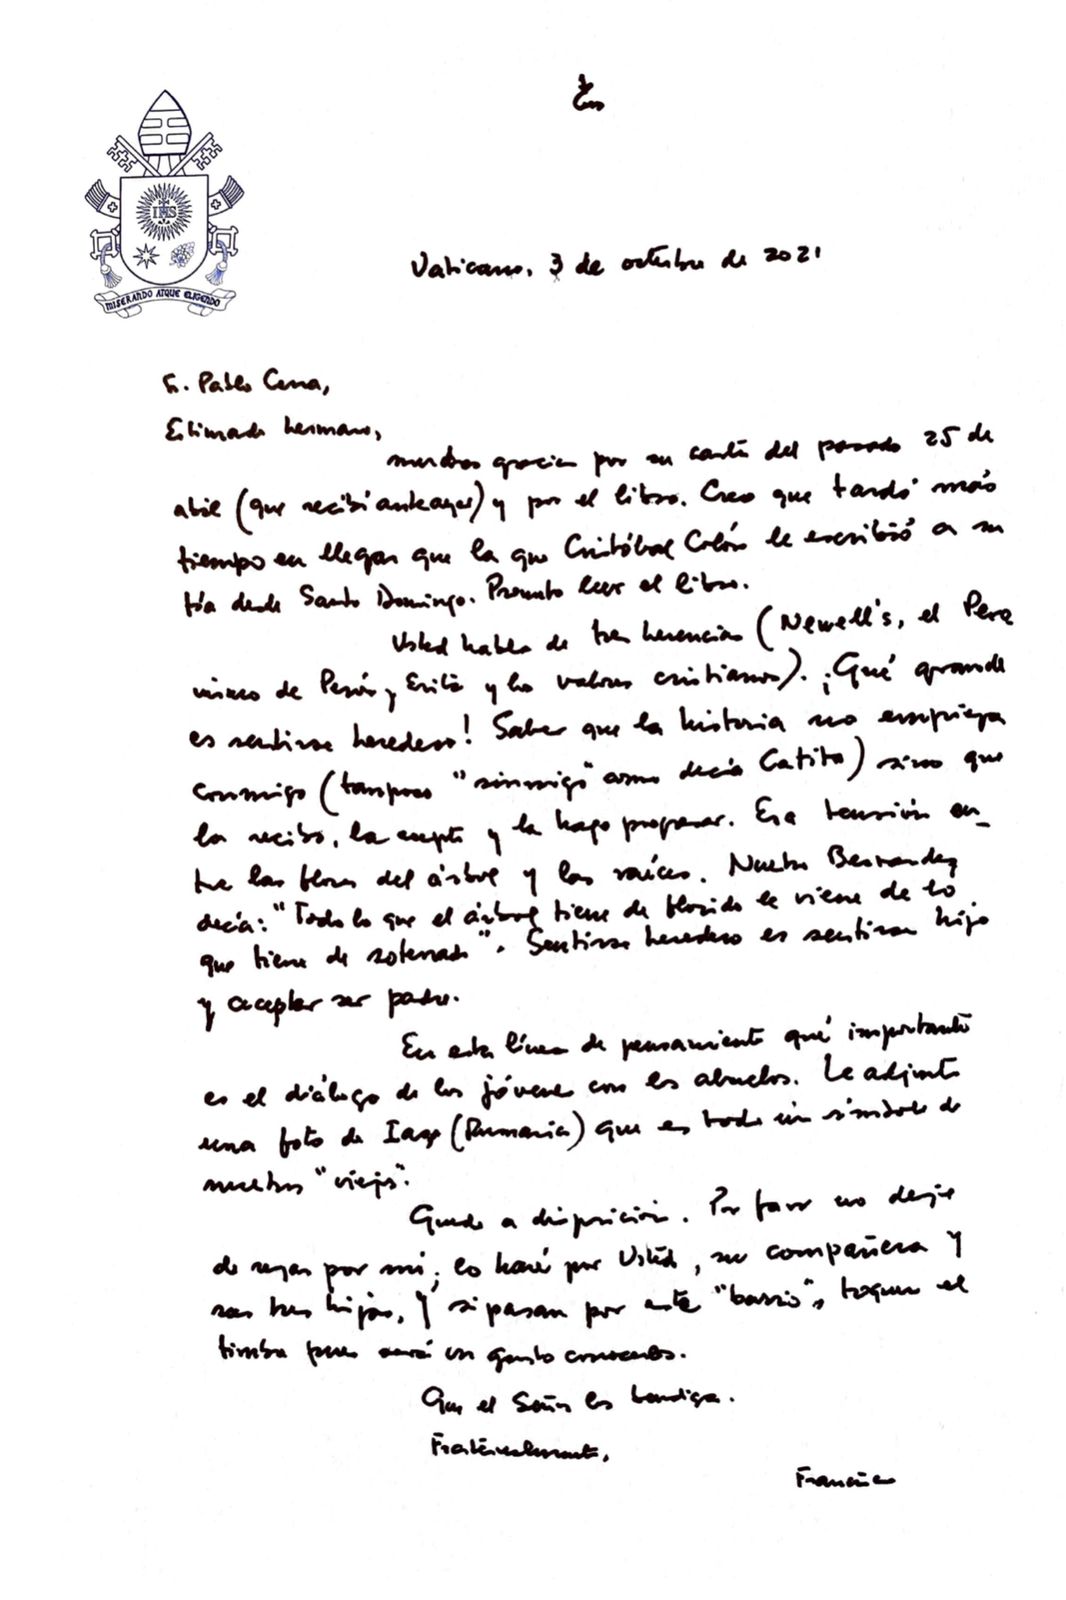 MISERANDO ATQUE ELIGENDO
Vaticano, 3 de octubre de 2021
Sr. Pablo Cena,
Estimado hermano,
muchas gracias por su carta del pasado 25 de
abril (que recibí anteayer) y por el libro. Creo que tardó más
tiempo en llegar que la que Cristóbal Colón le escribió a su
tía desde Santo Domingo. Prometo leer el libro.
Usted habla de tres herencias (Newell's, el Pero
nismo de Perón y Evita y los valores cristianos). ¡Qué grande
es sentirse heredero! Saber que la historia no empieza
conmigo (tampoco "sinmigo" como decía Catita) sino que
la recibo, la acepto y la hago progresar. Esa tensión en_
tre las flores del árbol y las raíces. Nuestro Bernardez
decía: "Todo lo que el árbol tiene de florido le viene de lo
que tiene de soterrado". Sentirse heredero es sentirse hijo
y aceptar ser padre.
En esta línea de pensamiento qué importante
es el diálogo de los jóvenes con los abuelos. Le adjunto
una foto de Iasi (Rumania) que es todo un símbolo de
nuestros "viejos".
Quedo a disposición. Por favor no deje
de rezar por mí; lo haré por Usted, su compañera y
sus tres hijos. Y si pasan por este "barrio", toquen el
timbre pues será un gusto conocerlos.
Que el Señor los bendiga.
Fraternalmente,
Francisco